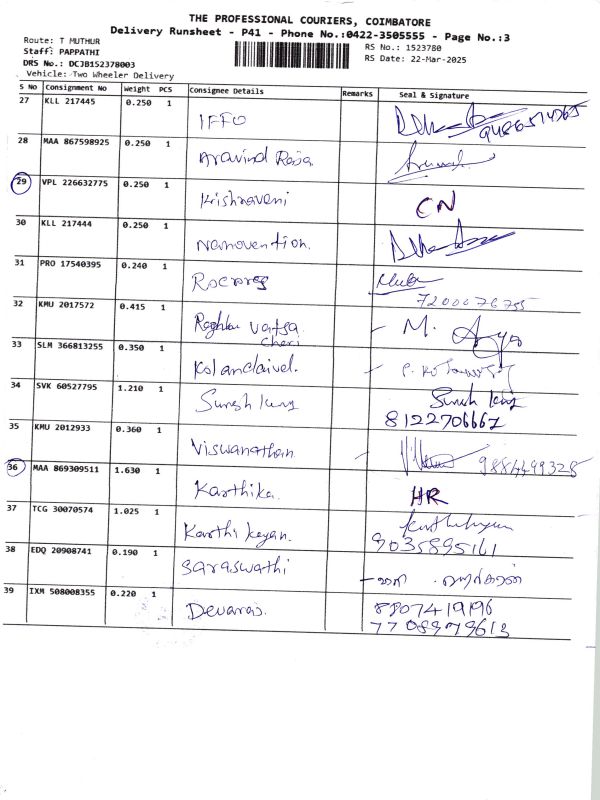 THE PROFESSIONAL COURIERS, COIMBATORE
Delivery Runsheet - P41 - Phone No.:0422-3505555 - Page No.:3
Route: T MUTHUR
RS No.: 1523780
Staff: PAPPATHI
RS Date: 22-Mar-2025
DRS No.: DCJB152378003
Vehicle: Two Wheeler Delivery
S No Consignment No Weight PCS Consignee Details Remarks Seal & Signature
27 KLL 217445 0.250 1 IFFO
28 MAA 867598925 0.250 1 Aravind Raja
29 VPL 226632775 0.250 1 Krishnaveni CN
30 KLL 217444 0.250 1 Nanovention.
31 PRO 17540395 0.240 1
7200076755
32 KMU 2017572 0.415 1 Raghu vatsa - M.
chari
33 SLM 366813255 0.350 1 Kolandaivel. -
34 SVK 60527795 1.210 1 Suresh king Suresh king
8122706667
35 KMU 2012933 0.360 1 Viswanathan - 9884499328
36 MAA 869309511 1.630 1 Karthika. HR
37 TCG 30070574 1.025 1 Karthi Keyan.
9035895161
38 EDQ 20908741 0.190 1 Saraswathi
39 IXM 508008355 0.220 1 Devaraj. 8807419196
7708979613